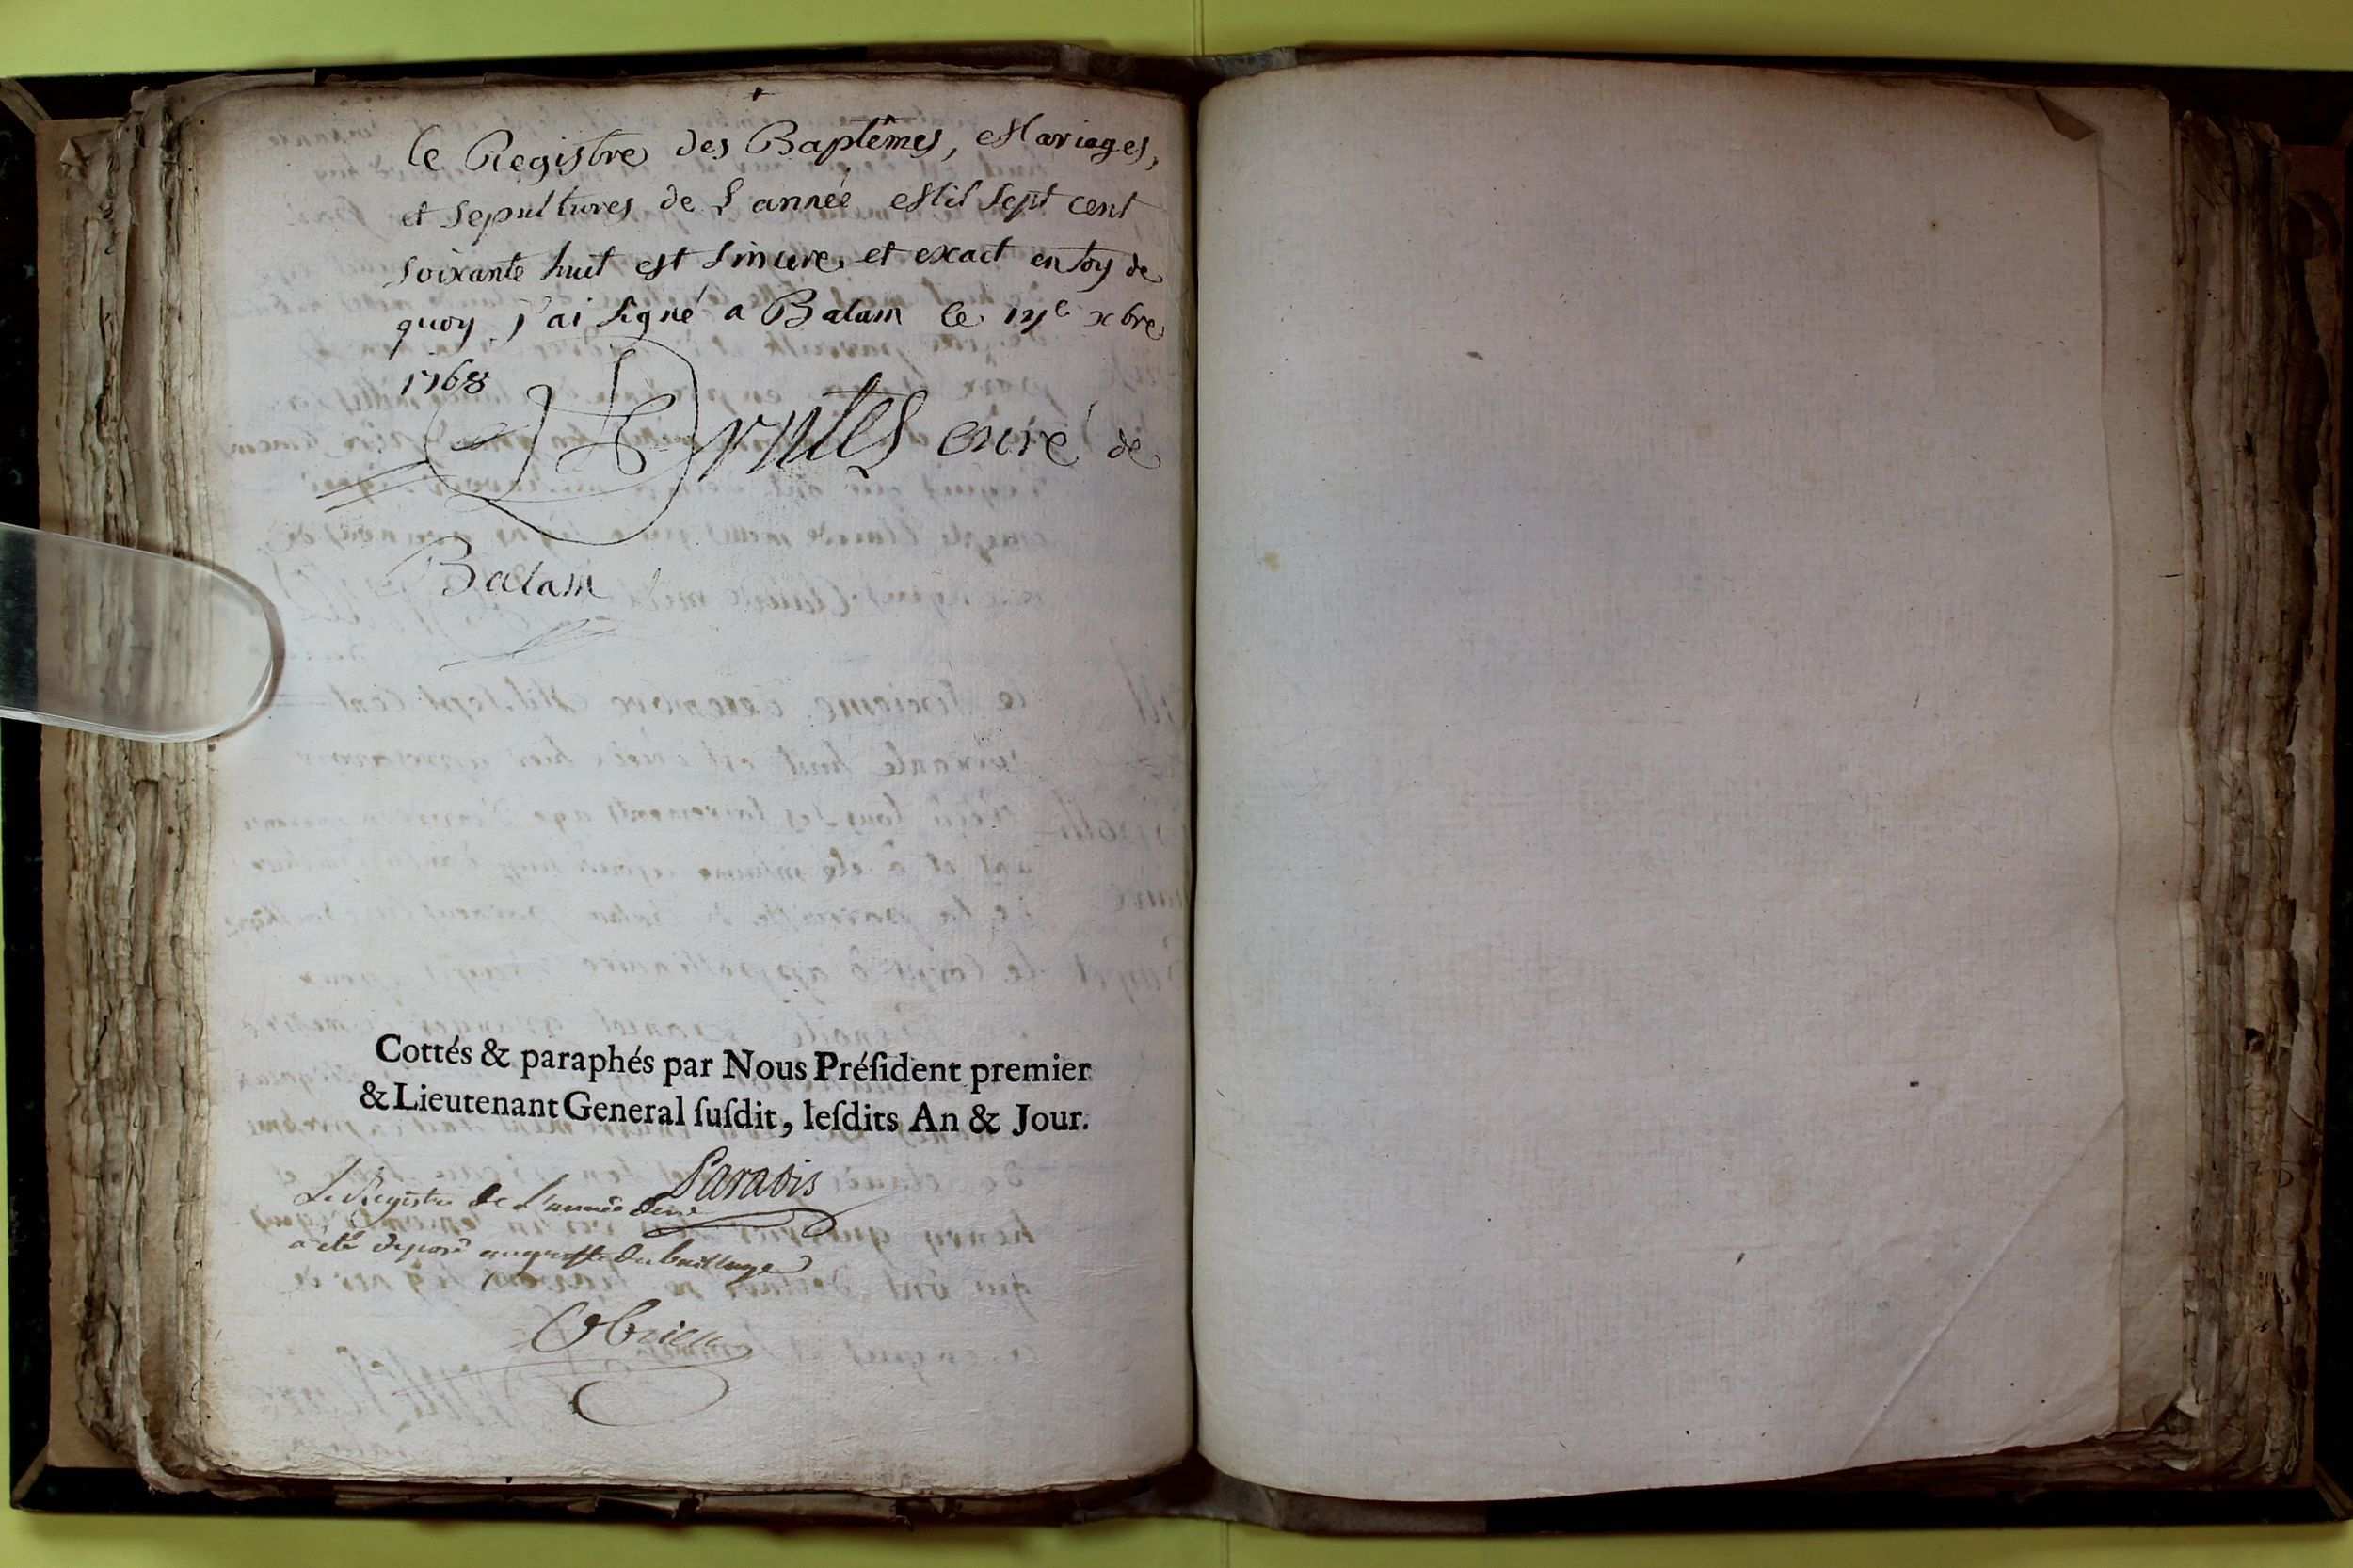 le Registre des Baptêmes, Mariages,
et sepultures de l'année Mil sept cent
soixante huit est sincere et exact en foy de
quoy j'ai signé a Balam le xbre
1768
curé de
Balam
Cottés & paraphés par Nous Préſident premier
& Lieutenant General ſuſdit, leſdits An & Jour.
Paradis
Le Registre de l'année
a eté deposé au greffe du bailliage
Obrien